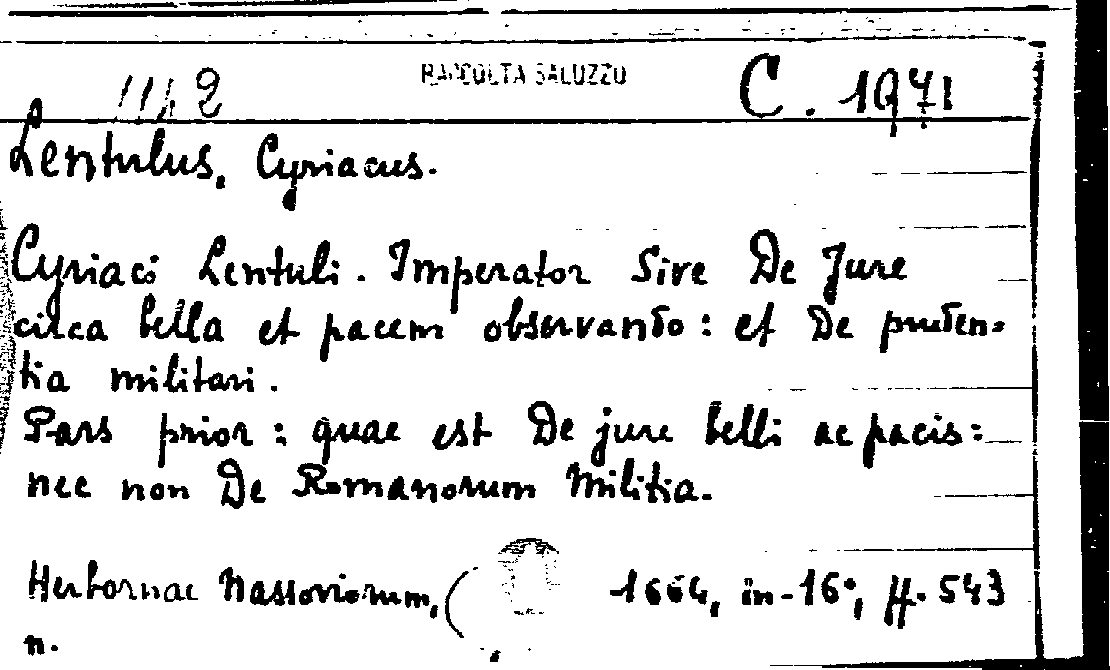 1142 RACCOLTA SALUZZO C. 1971
Lentulus, Cyriacus.
Cyriaci Lentuli. Imperator Sive De Jure
circa bella et pacem observando: et De pruden-
tia militari.
Pars prior: quae est De jure belli ac pacis:
nec non De Romanorum Militia.
Herbornae Nassoviorum, 1664, in-16°, ff. 543
n.